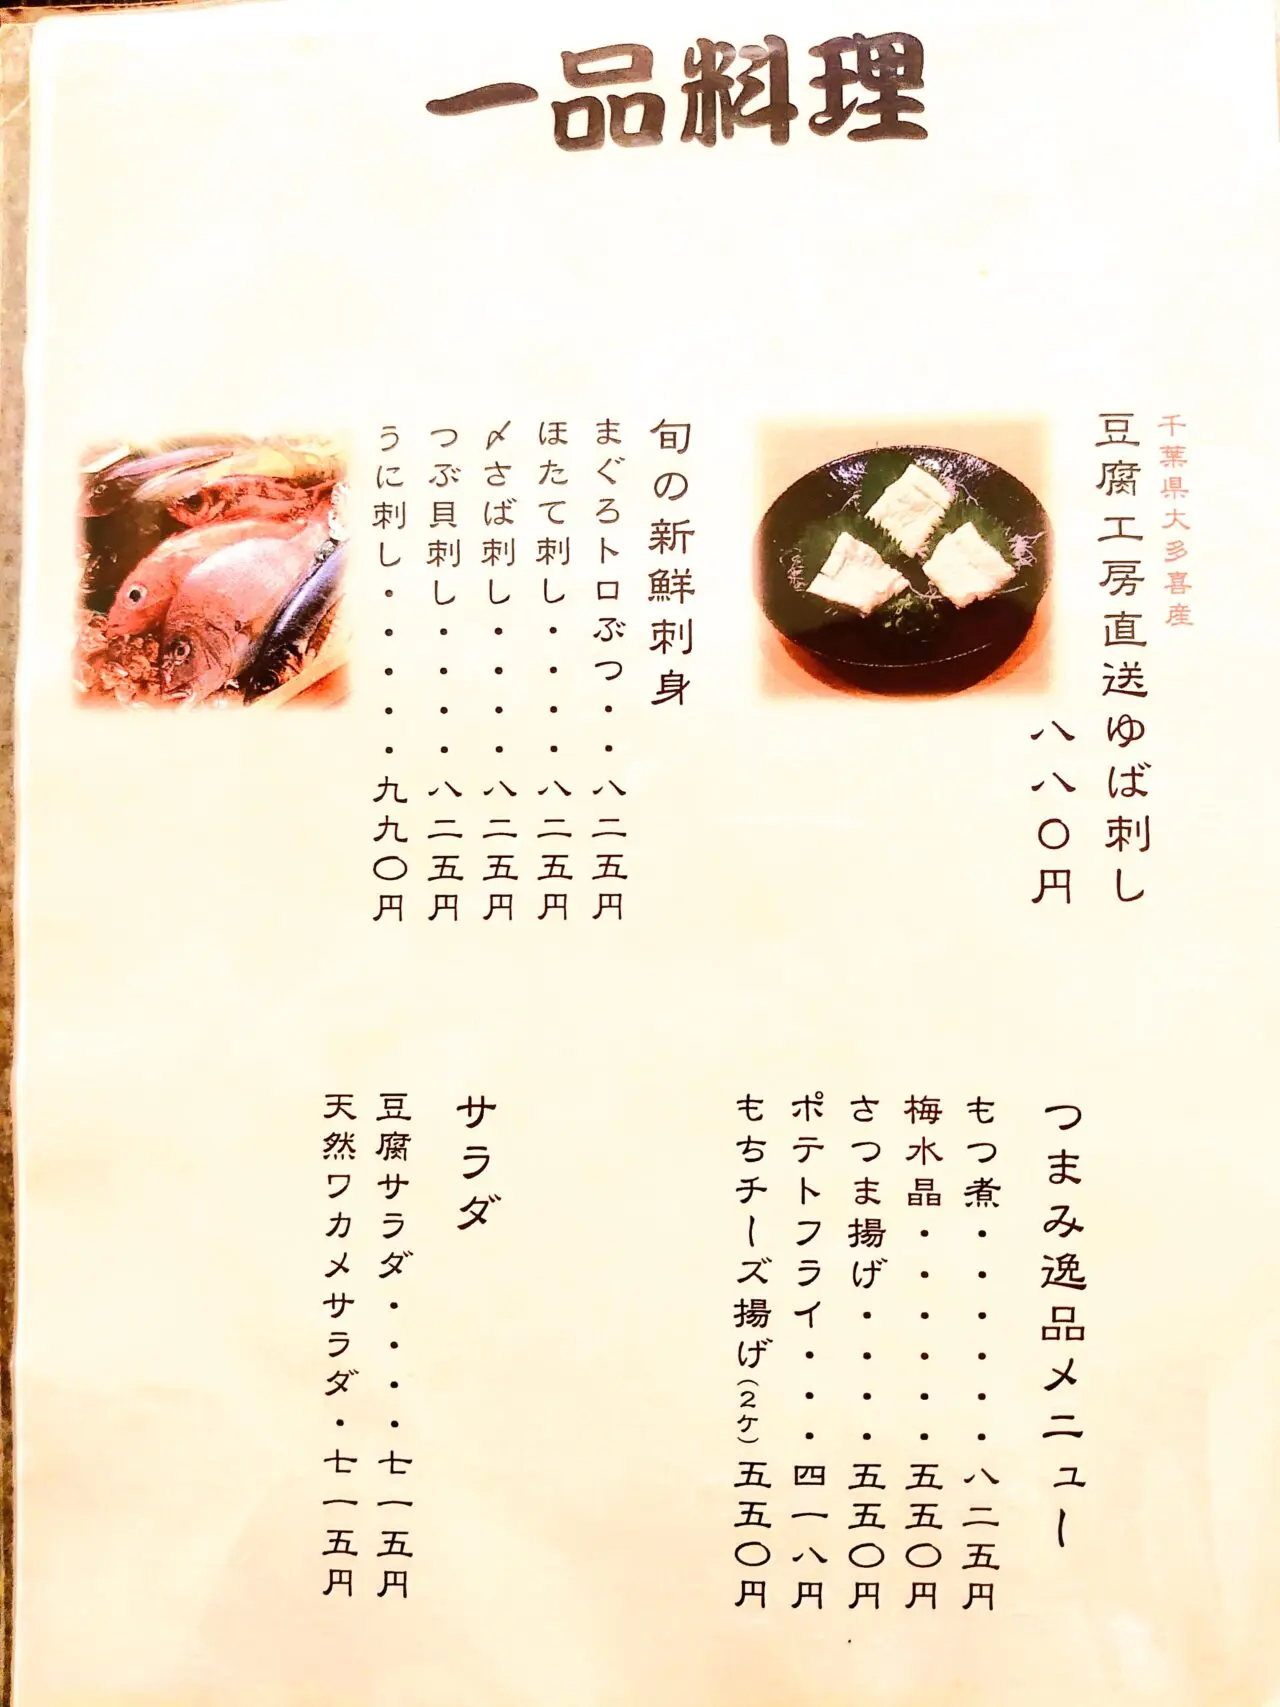 一品料理
千葉県大多喜産
豆腐工房直送ゆば刺し
八八〇円
旬の新鮮刺身
まぐろトロぶつ・・八二五円
ほたて刺し・・・・八二五円
〆さば刺し・・・・八二五円
つぶ貝刺し・・・・八二五円
うに刺し・・・・・九九〇円
つまみ逸品メニュー
もつ煮・・・・・・八二五円
梅水晶・・・・・・五五〇円
さつま揚げ・・・・五五〇円
ポテトフライ・・・四一八円
もちチーズ揚げ(2ケ)五五〇円
サラダ
豆腐サラダ・・・・七一五円
天然ワカメサラダ・七一五円